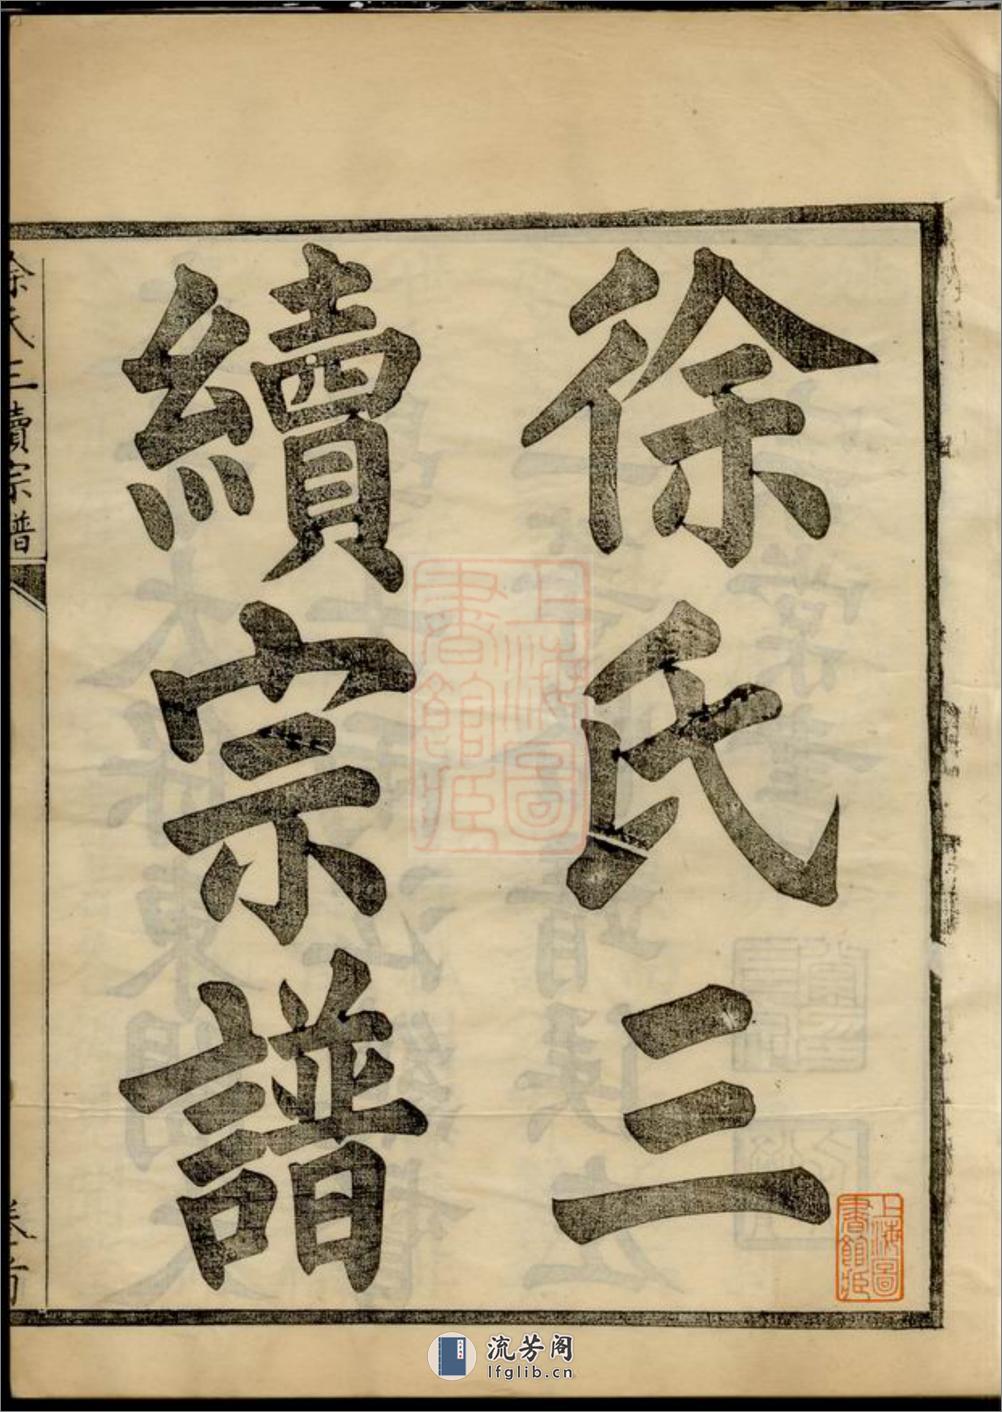 徐氏三
續宗譜
徐氏三續宗譜
卷首
上海圖
書館臧
上海圖
書館臧
流芳阁
lfglib.cn